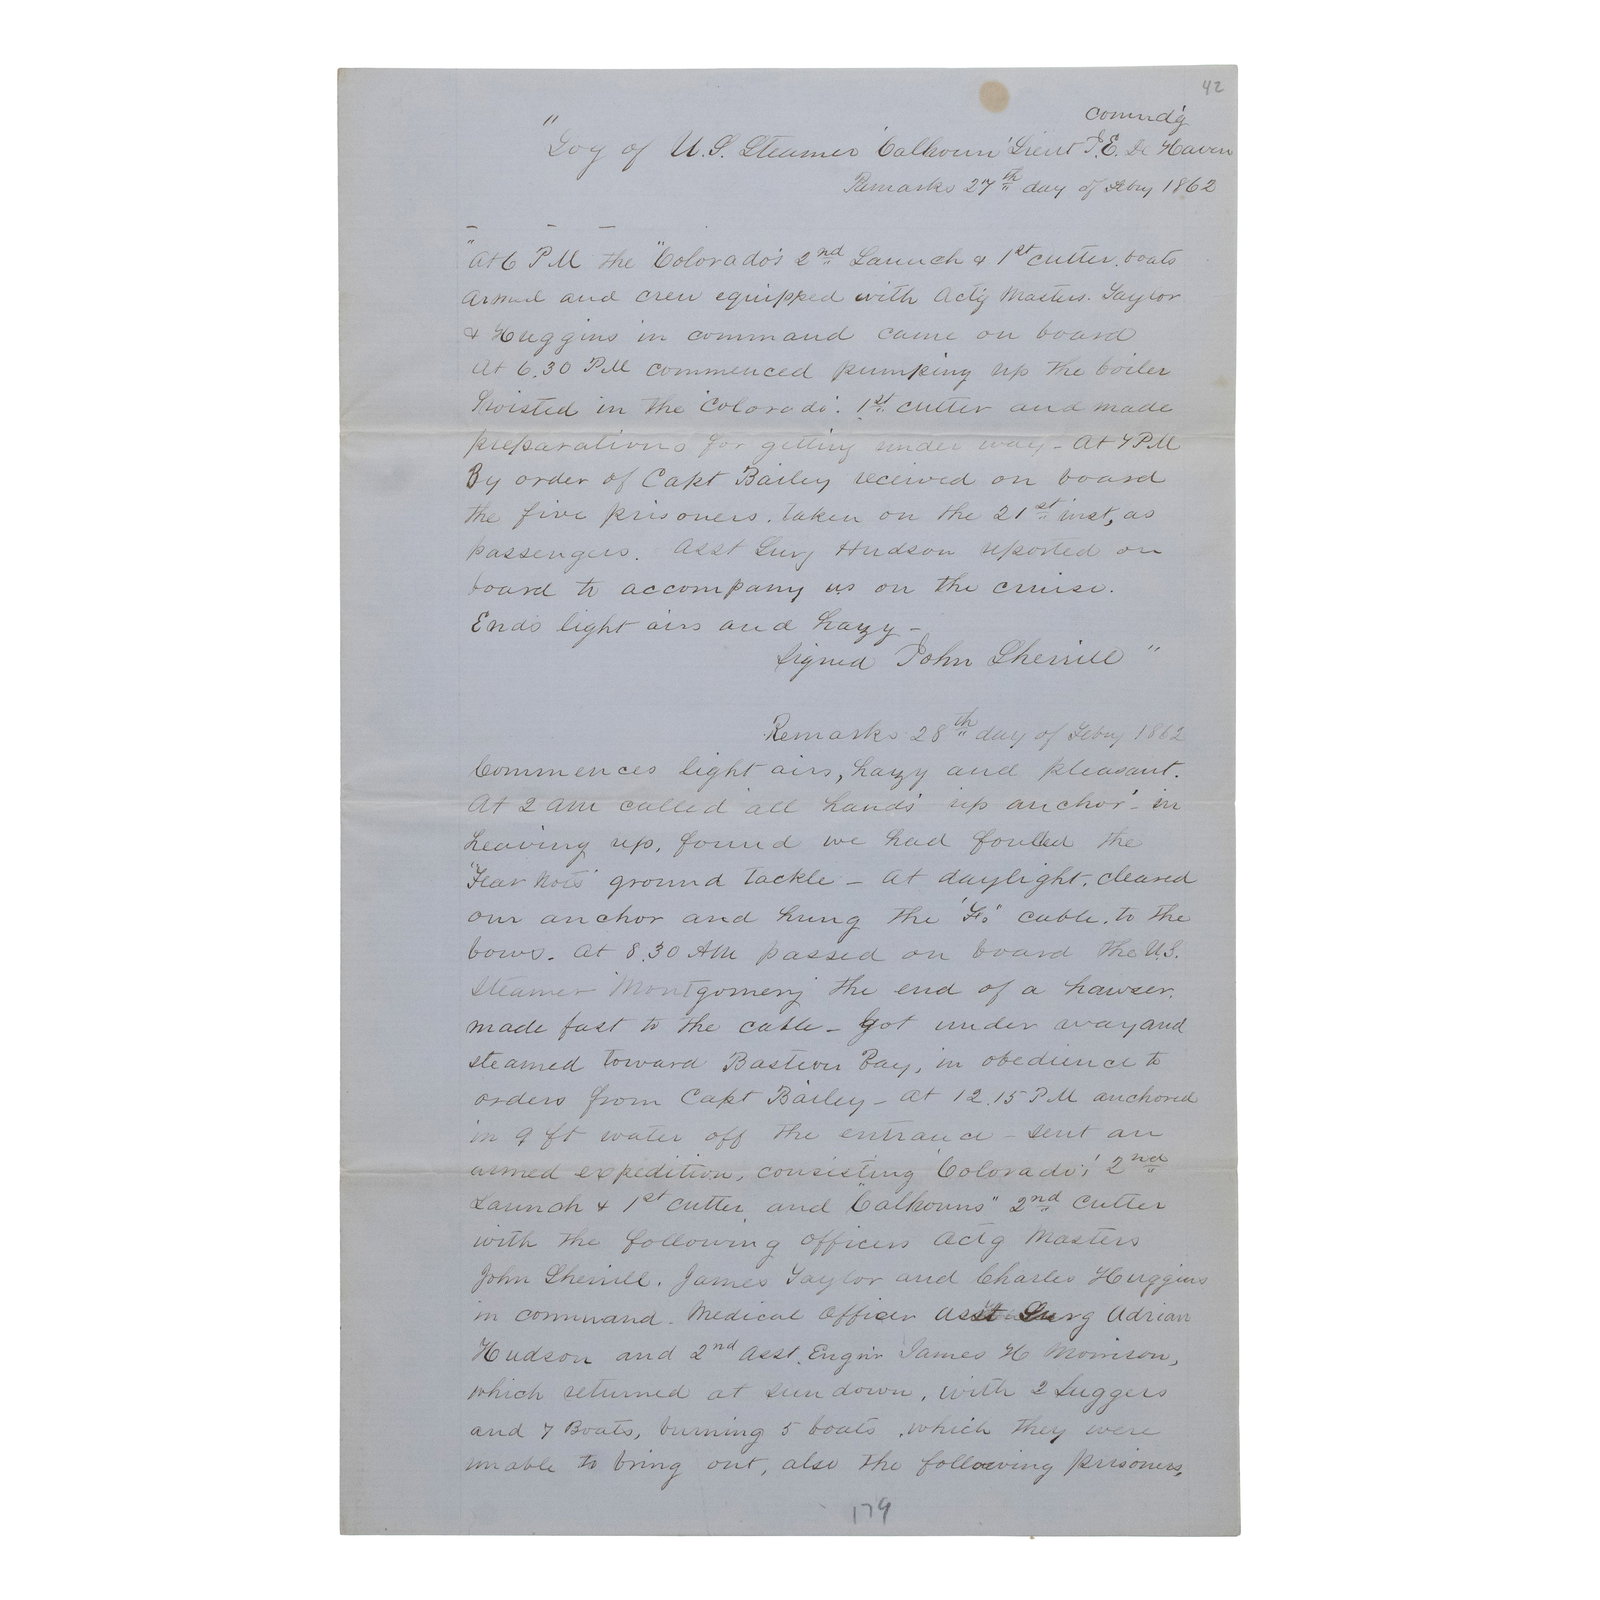 42
comnd'g
"Log of U.S. Steamer 'Calhoun' Lieut J.E. De Haven
Remarks 27th day of Feby 1862
"At 6 P.M the "Colorado's 2nd Launch & 1st cutter, boats
armed and crew equipped with Actg Masters. Taylor
& Huggins in command came on board
At 6.30 PM commenced pumping up the boiler
hoisted in the Colorado'. 1st cutter and made
preparations for getting under way - At 7 PM
By order of Capt Bailey received on board
the five prisoners. taken on the 21st inst, as
passengers. Asst Surg Hudson reported on
board to accompany us on the cruise.
Ends light airs and hazy -
Signed John Sherrill "
Remarks 28th day of Feby 1862
Commences light airs, hazy and pleasant.
At 2 am called 'all hands' up anchor' - in
heaving up, found we had fouled the
'Fear Nots' ground tackle - At daylight, cleared
our anchor and hung the 'F's' cable. to the
bows. At 8.30 AM passed on board the U.S.
Steamer 'Montgomery' the end of a hawser.
made fast to the cable - Got under way and
steamed toward Bastien Bay, in obedience to
orders from Capt Bailey - At 12.15 PM anchored
in 9 ft water off the entrance - Sent an
armed expedition, consisting 'Colorado's' 2nd
Launch & 1st cutter and "Calhouns" 2nd Cutter
with the following officers Actg Masters
John Sherrill. James Taylor and Charles Huggins
in command - Medical Officer Asst Surg Adrian
Hudson and 2nd Asst. Eng'nr James H Morrison,
which returned at sundown, with 2 Luggers
and 7 Boats, burning 5 boats, which they were
unable to bring out, also the following prisoners,
179